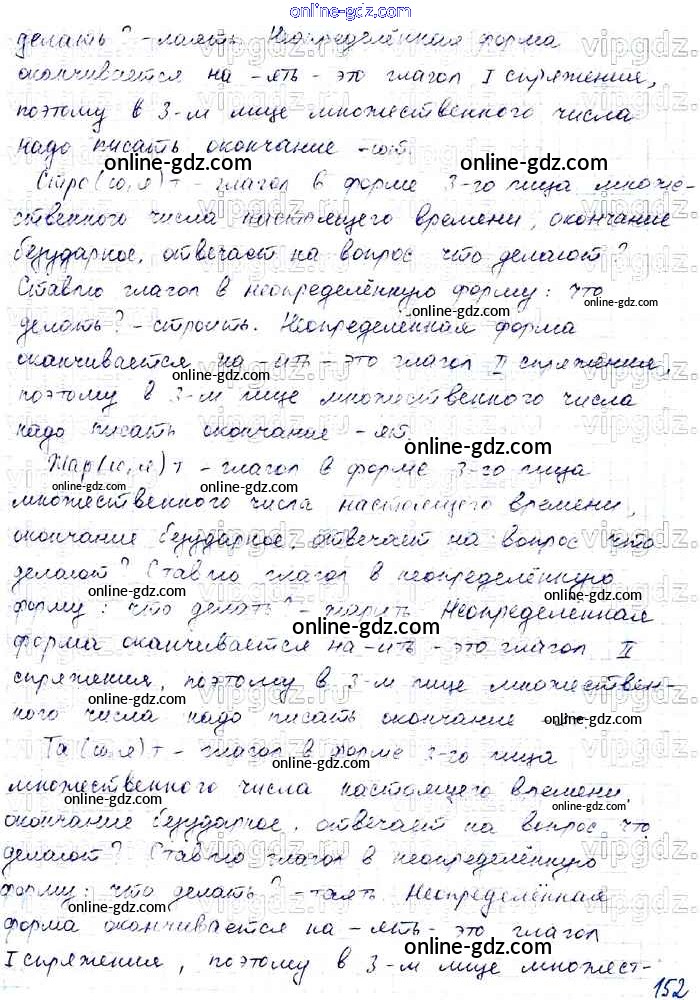 online-gdz.com
делать? - лаять. Неопределённая форма
оканчивается на -ять - это глагол I спряжения,
поэтому в 3-м лице множественного числа
надо писать окончание -ют.
Стро(ю,я)т - глагол в форме 3-го лица множе-
ственного числа настоящего времени, окончание
безударное, отвечает на вопрос что делают?
Ставлю глагол в неопределённую форму: что
делать? - строить. Неопределённая форма
оканчивается на -ить - это глагол II спряжения,
поэтому в 3-м лице множественного числа
надо писать окончание -ят.
Жар(ю,я)т - глагол в форме 3-го лица
множественного числа настоящего времени,
окончание безударное, отвечает на вопрос что
делают? Ставлю глагол в неопределённую
форму: что делать? - жарить. Неопределённая
форма оканчивается на -ить - это глагол II
спряжения, поэтому в 3-м лице множествен-
ного числа надо писать окончание
Та(ю,я)т - глагол в форме 3-го лица
множественного числа настоящего времени,
окончание безударное, отвечает на вопрос что
делают? Ставлю глагол в неопределённую
форму: что делать? - таять. Неопределённая
форма оканчивается на -ять - это глагол
I спряжения, поэтому в 3-м лице множест-
152